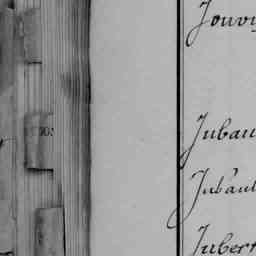 Jouvi
Jubau
Jubaul
Jubert